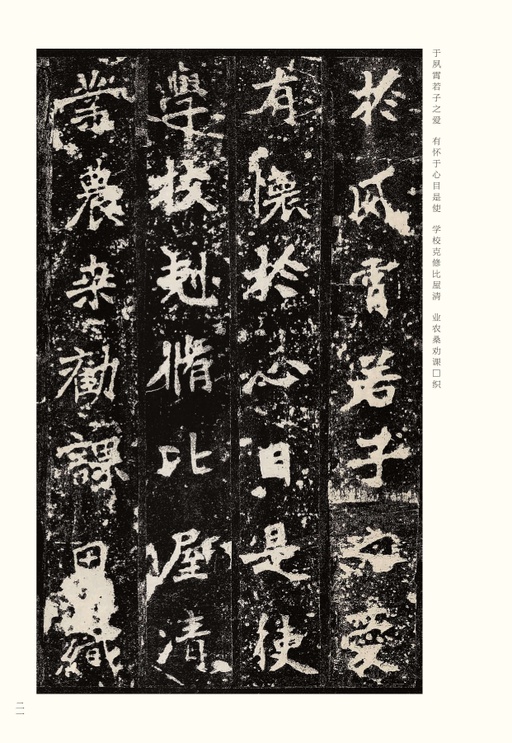 于夙霄若子之爱　有怀于心目是使　学校克修比屋清　业农桑劝课□织
於夙霄若子之愛
有懷於心目是使
學校尅脩比屋清
業農桒勸課織
二一